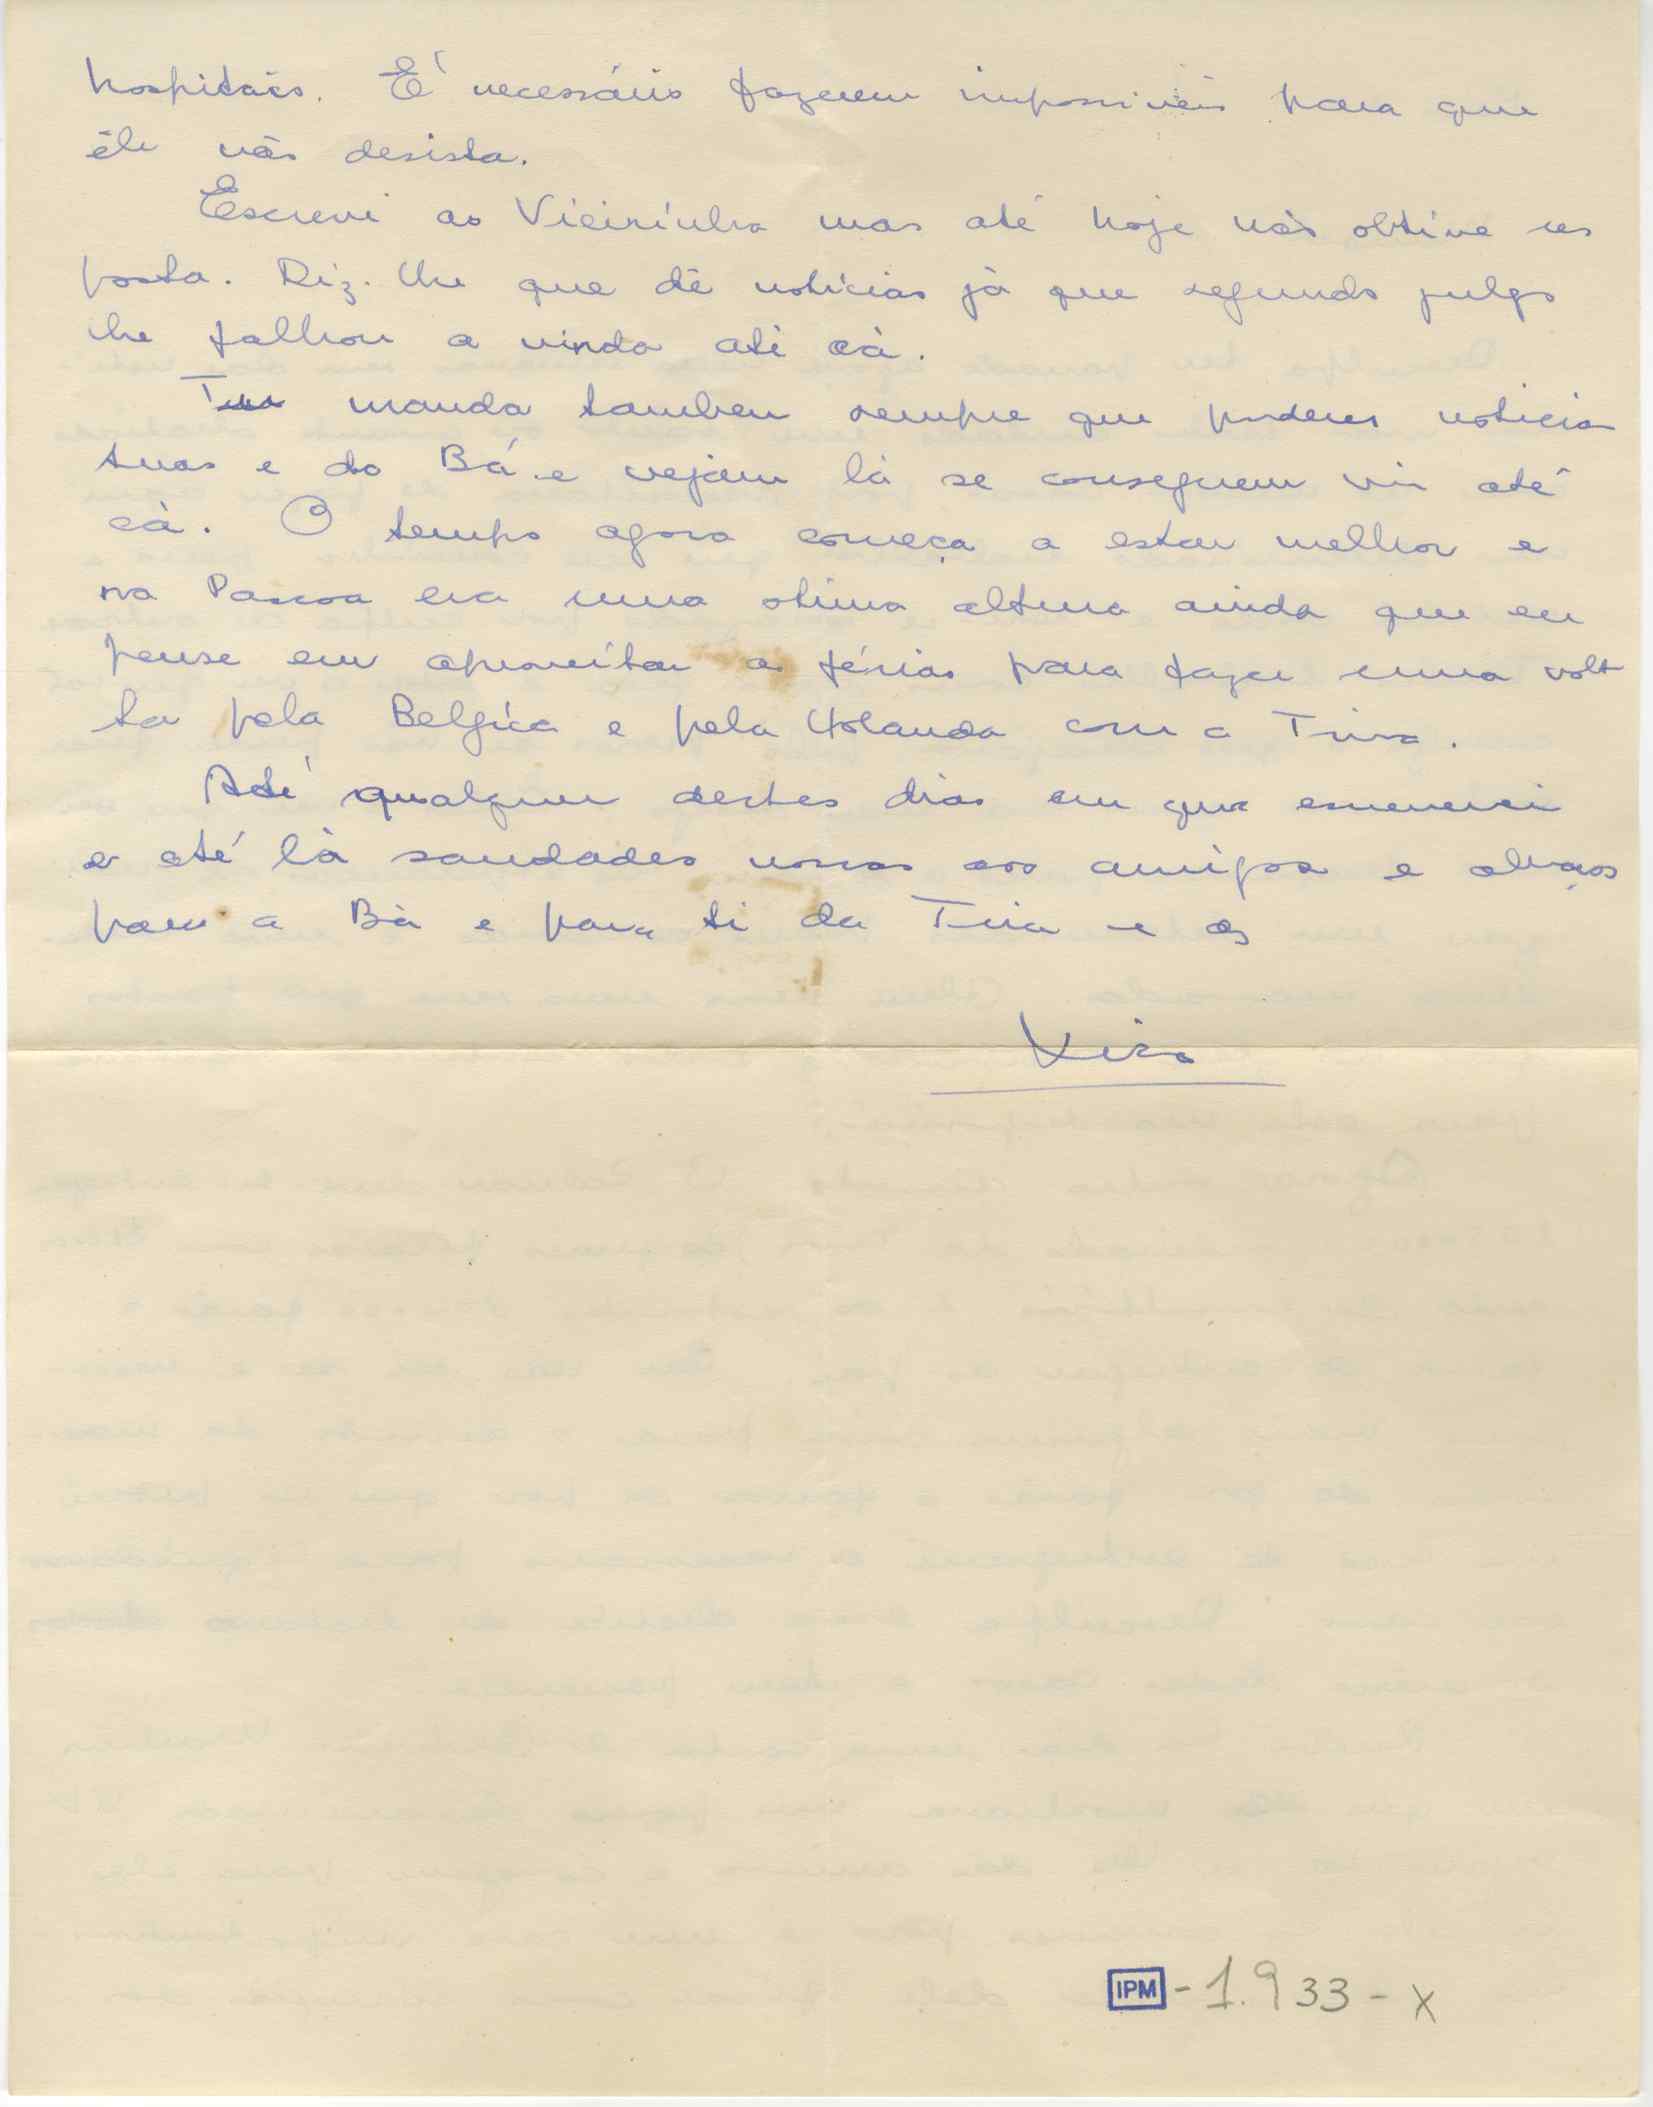 hospitais. É necessário fazerem impossiveis para que
êle não desista.
Escrevi ao Vieirinha mas até hoje não obtive res
posta. Diz-lhe que dê notícias já que segundo julgo
lhe falhou a vinda até cá.
manda tambem sempre que puderes noticias
tuas e do Bá e vejam lá se conseguem vir até
cá. O tempo agora começa a estar melhor e
na Pascoa era uma otima altura ainda que eu
pense em aproveitar as férias para fazer uma volt
ta pela Belgica e pela Holanda com a
Até qualquer destes dias em que escreverei
e até lá saudades nossas aos amigos e abraços
para a Bá e para ti da e do
IPM - 1.933 - X